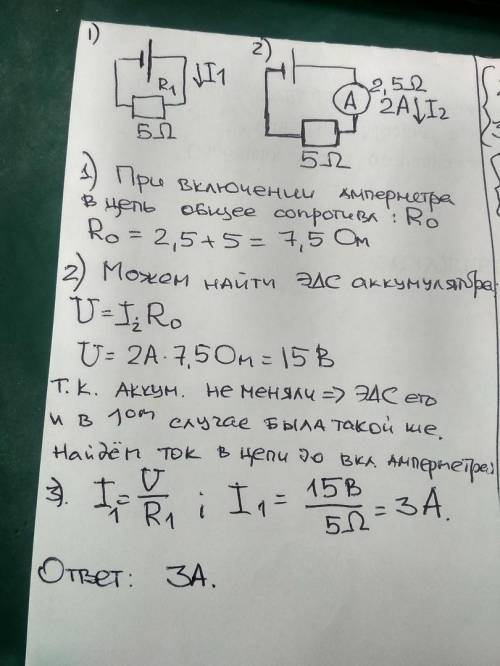 1)
R1 ↓I1
5Ω
2)
2,5Ω
A 2A↓I2
5Ω
1) При включении амперметра
в цепь общее сопротивл: R0
R0 = 2,5+5 = 7,5 Ом
2) Можем найти ЭДС аккумулятора:
U=I2R0
U= 2A·7,5Ом=15В
Т.к. аккум. не меняли => ЭДС его
и в 1ом случае была такой же.
Найдём ток в цепи до вкл. амперметра:
3). I1=U/R1 ; I1 = 15В/5Ω = 3А.
Ответ: 3А.